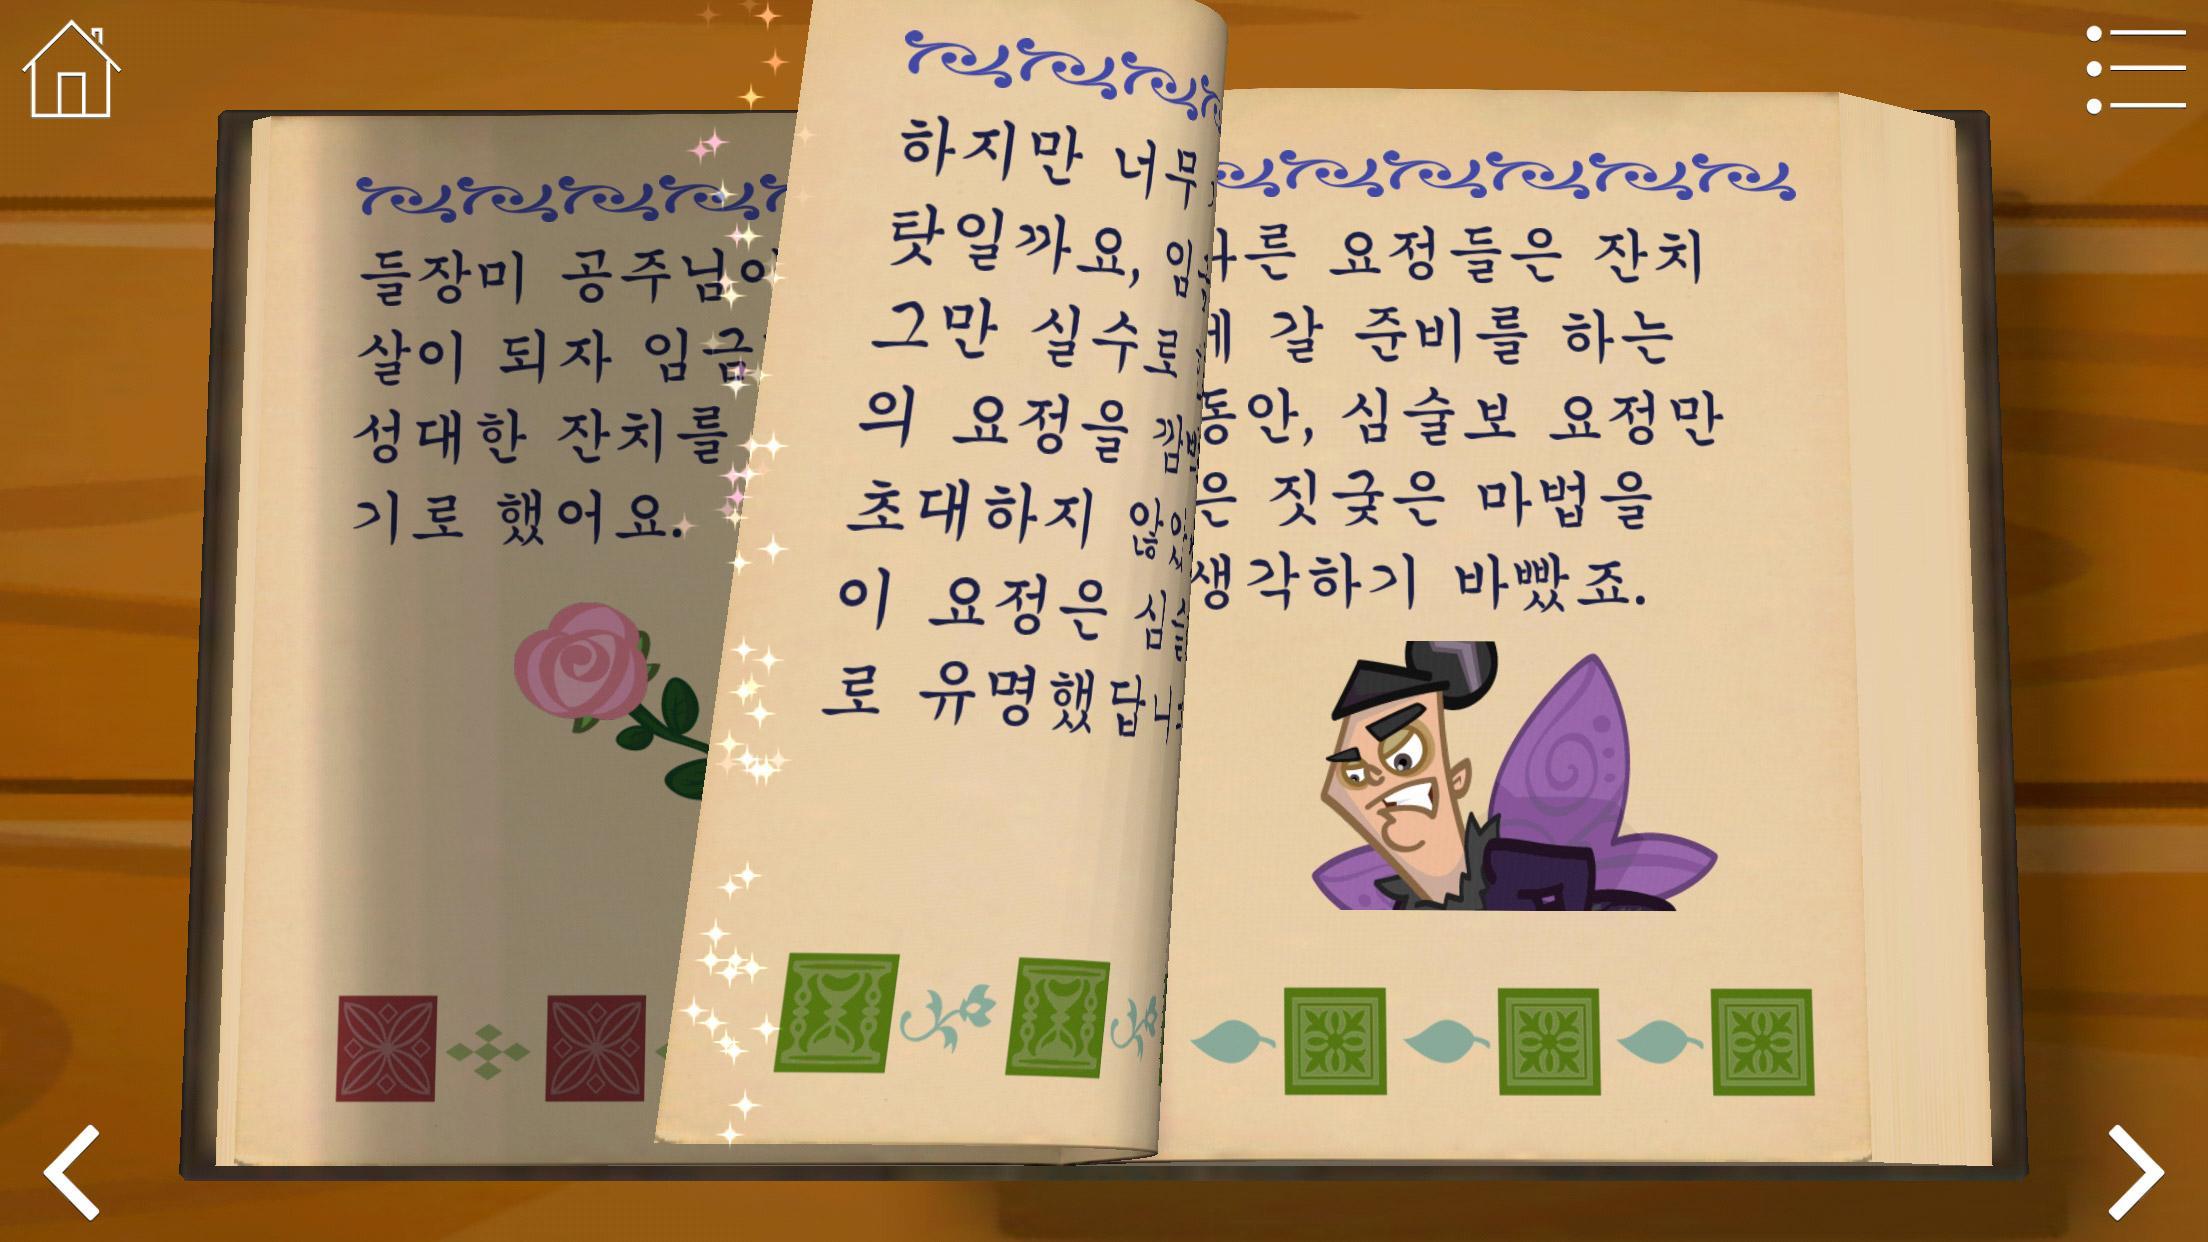 들장미 공주님이
살이 되자
성대한 잔치를
기로 했어요.
하지만 너무
탓일까요,
그만 실수로
의 요정을
초대하지
이 요정은
로 유명했답니다
요정들은 잔치
갈 준비를 하는
동안, 심술보 요정만
은 짓궂은 마법을
생각하기 바빴죠.